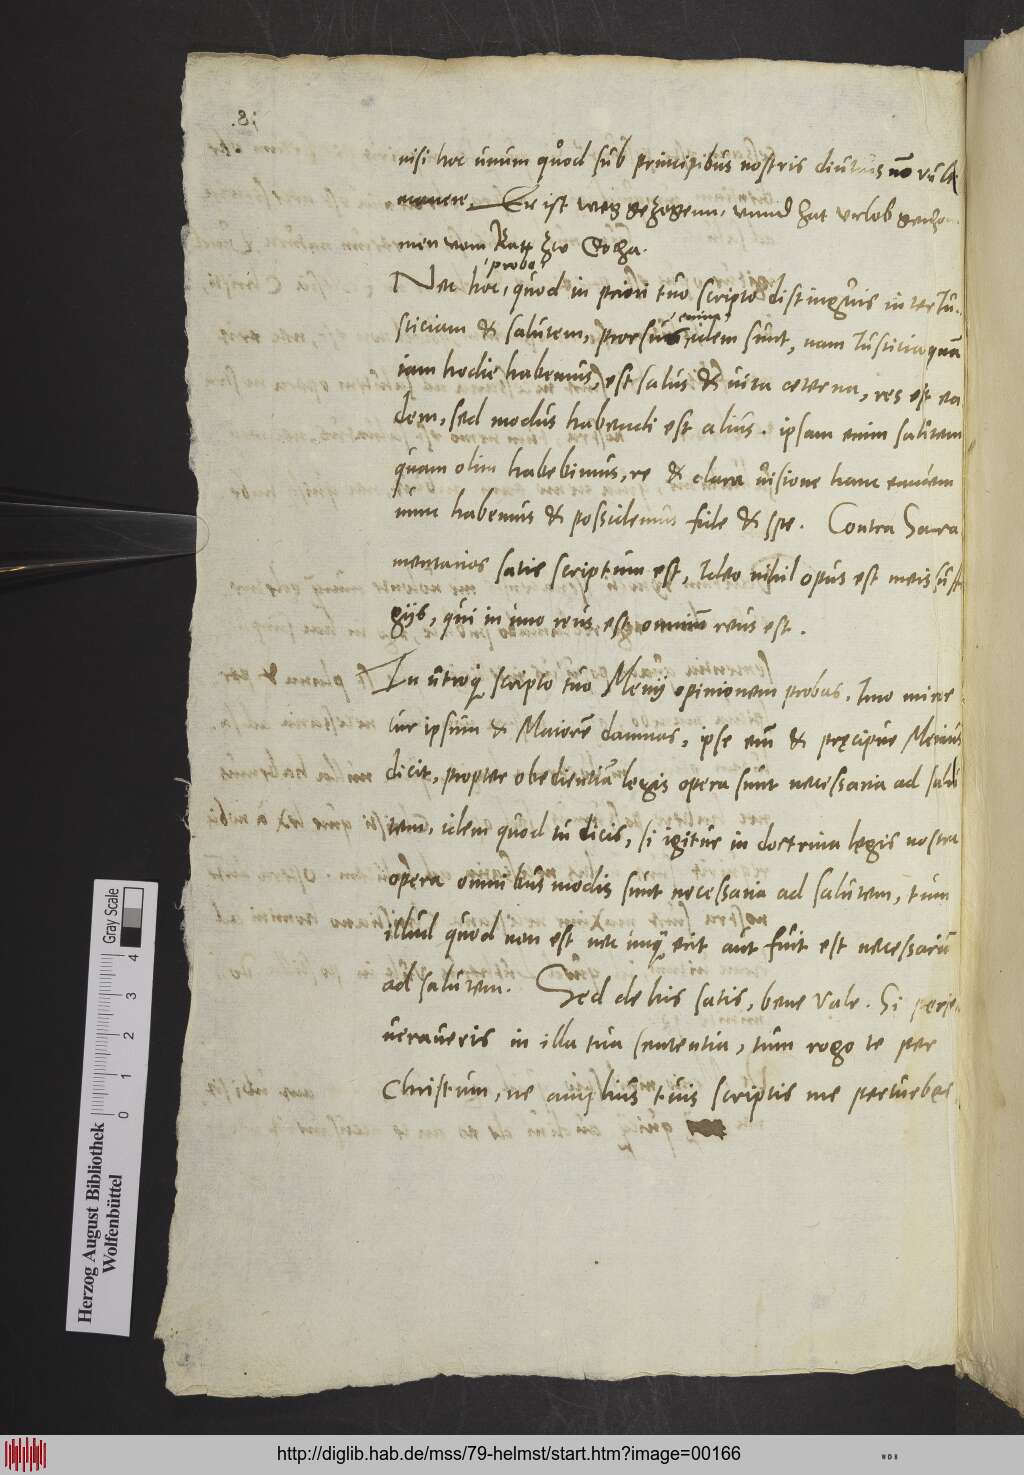 nisi hoc unum quod sub principibus nostris diutius nõ vult
manere. Er ist weg gezogenn, vnnd hat vrlob genhom
men vom Ratt zw Gotha.
probo
Nec hoc, quod in priori tuo scripto distinguis inter Iu-
enim
sticiam & salutem, prorsus idem sunt, nam Iusticia quam
iam hodie habemus, est salus & uita aeterna, res est ea
dem, sed modus habendi est alius. ipsam enim salutem
quam olim habebimus, re & clara uisione hanc eandem
nunc habemus & possidemus fide & spe. Contra Sacra
mentarios satis scriptum est, Ideo nihil opus est meis suf
gijs, qui in uno reus est omnium reus est.
In utroq scripto tuo Menij opinionem probas. Imo mire
cur ipsum & Maiorẽ damnas, ipse enĩ & pręcipue Menius
dicit, propter obedientiã legis opera sunt necessaria ad salu
tem, idem quod tu dicis, si igitur in doctrina legis nostra
opera omnibus modis sunt necessaria ad salutem, tum
illud quod non est nec unq erit aut fuit est necessariũ
ad salutem. Sed de his satis, bene Vale. Si perse
ueraueris in illa tua sententia, tum rogo te per
Christum, ne amplius tuis scriptis me perturbes
Herzog August Bibliothek
Wolfenbüttel
0 1 2 3 4
Gray Scale
http://diglib.hab.de/mss/79-helmst/start.htm?image=00166